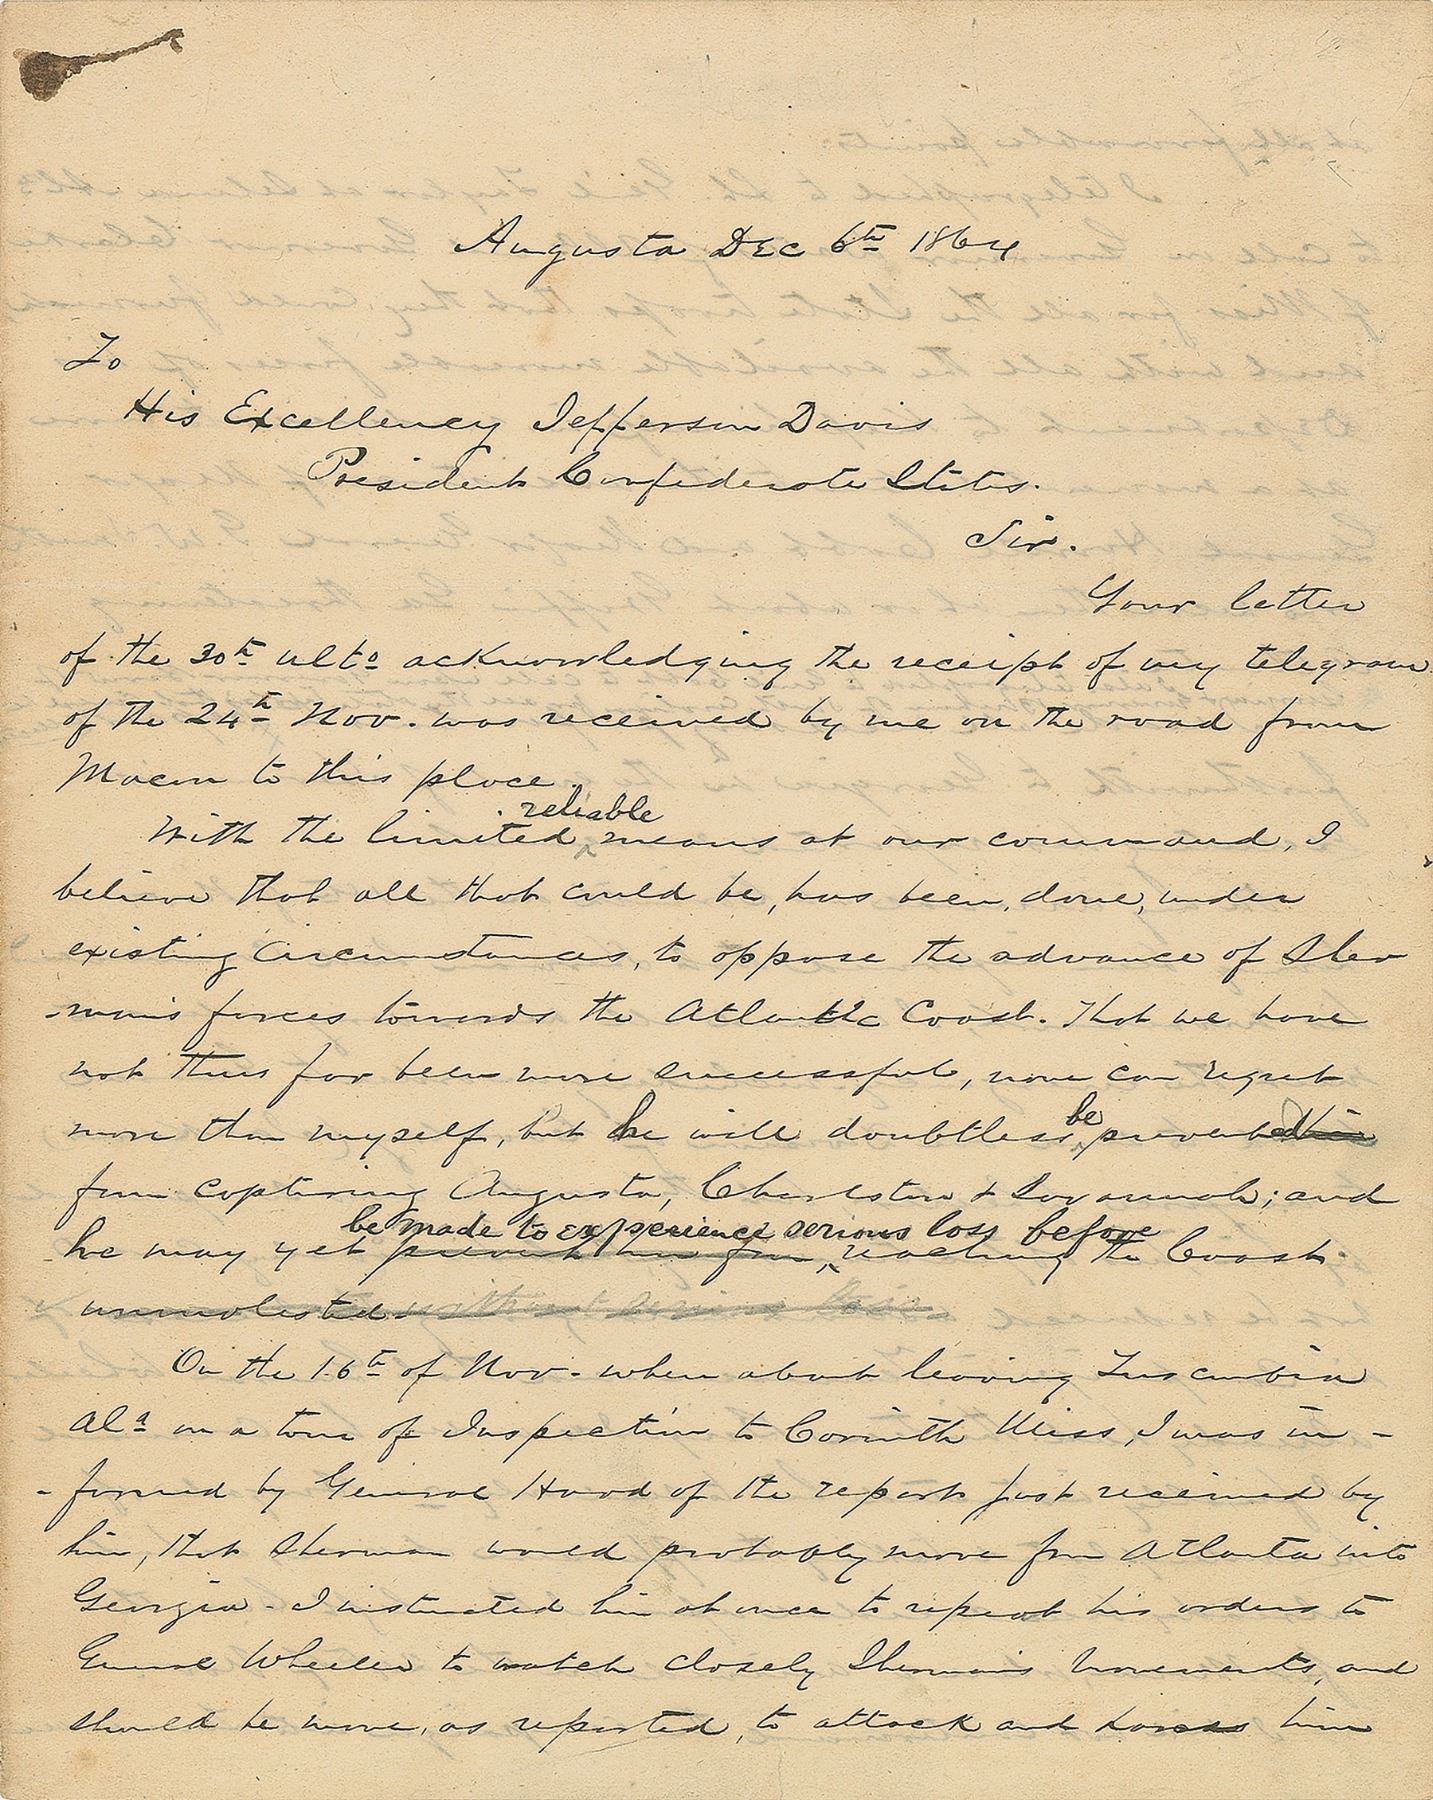 Augusta Dec 6th 1864
To
His Excellency Jefferson Davis
President Confederate States.
Sir.
Your letter
of the 30th ulto acknowledging the receipt of my telegram
of the 24th Nov. was received by me on the road from
Macon to this place.
reliable
With the limited ^ means at our command, I
believe that all that could be, has been, done, under
existing circumstances, to oppose the advance of Sher
-man's forces towards the Atlantic Coast. That we have
not thus far been more successful, none can regret
be
more than myself, but he will doubtless ^ prevented him
from capturing Augusta, Charleston & Savannah; and
be made to experience serious loss before
he may yet prevent him from, ^ reaching the Coast
unmolested without serious loss.
On the 16th of Nov. when about leaving Tuscumbia
Ala on a tour of Inspection to Corinth Miss, I was in-
-formed by General Hood of the report just received by
him, that Sherman would probably move from Atlanta into
Georgia - I instructed him at once to repeat his orders to
General Wheeler to watch closely Sherman's movements, and
should he move, as reported, to attack and harass him